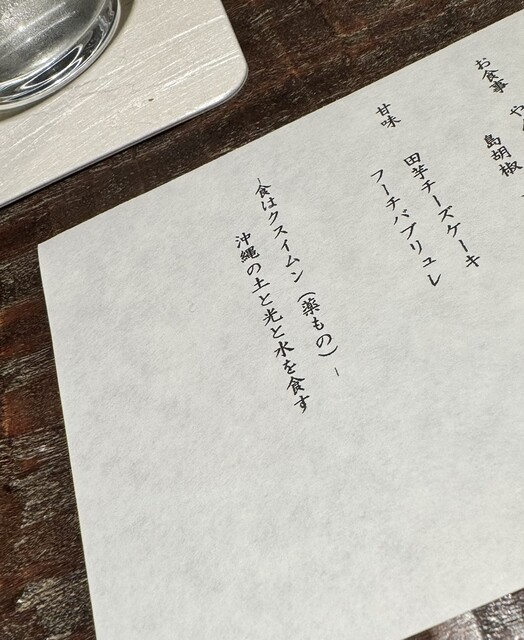 お食事
島胡椒
甘味
田芋チーズケーキ
フーチバブリュレ
-食はクスイムン(薬もの)-
沖縄の土と光と水を食す